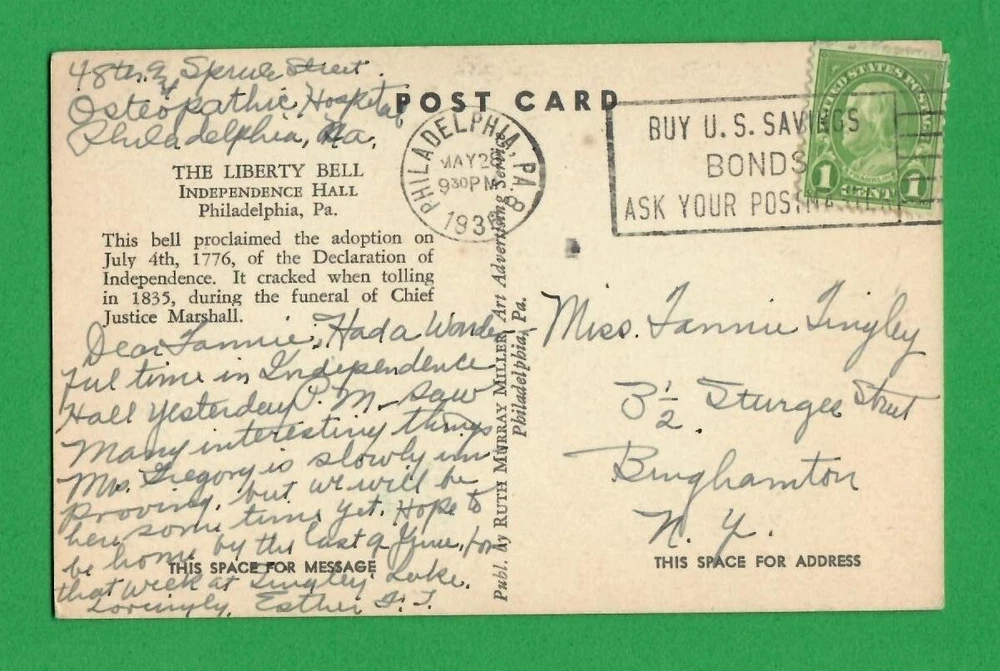 48th & Spruce Street.
Osteopathic Hospital
Philadelphia, Pa.
POST CARD
THE LIBERTY BELL
INDEPENDENCE HALL
Philadelphia, Pa.
This bell proclaimed the adoption on
July 4th, 1776, of the Declaration of
Independence. It cracked when tolling
in 1835, during the funeral of Chief
Justice Marshall.
Dear Fannie, Had a Wonder-
ful time in Independence
Hall yesterday P.M. - saw
many interesting things
Mrs. Gregory is slowly im
proving, but we will be
here some time yet. Hope to
be home by the last of June, for
that week at Tingley Lake.
Lovingly, Esther
THIS SPACE FOR MESSAGE
Publ. by RUTH MURRAY MILLER, Art Advertising Service
Philadelphia, Pa.
PHILADELPHIA, PA. 8
MAY 2
9 30 PM
193
BUY U.S. SAVINGS
BONDS
ASK YOUR POSTMASTER
UNITED STATES POSTAGE
FRANKLIN
1 CENT 1
Miss. Fannie Tingley
3½ Sturges Street
Binghamton
N. Y.
THIS SPACE FOR ADDRESS